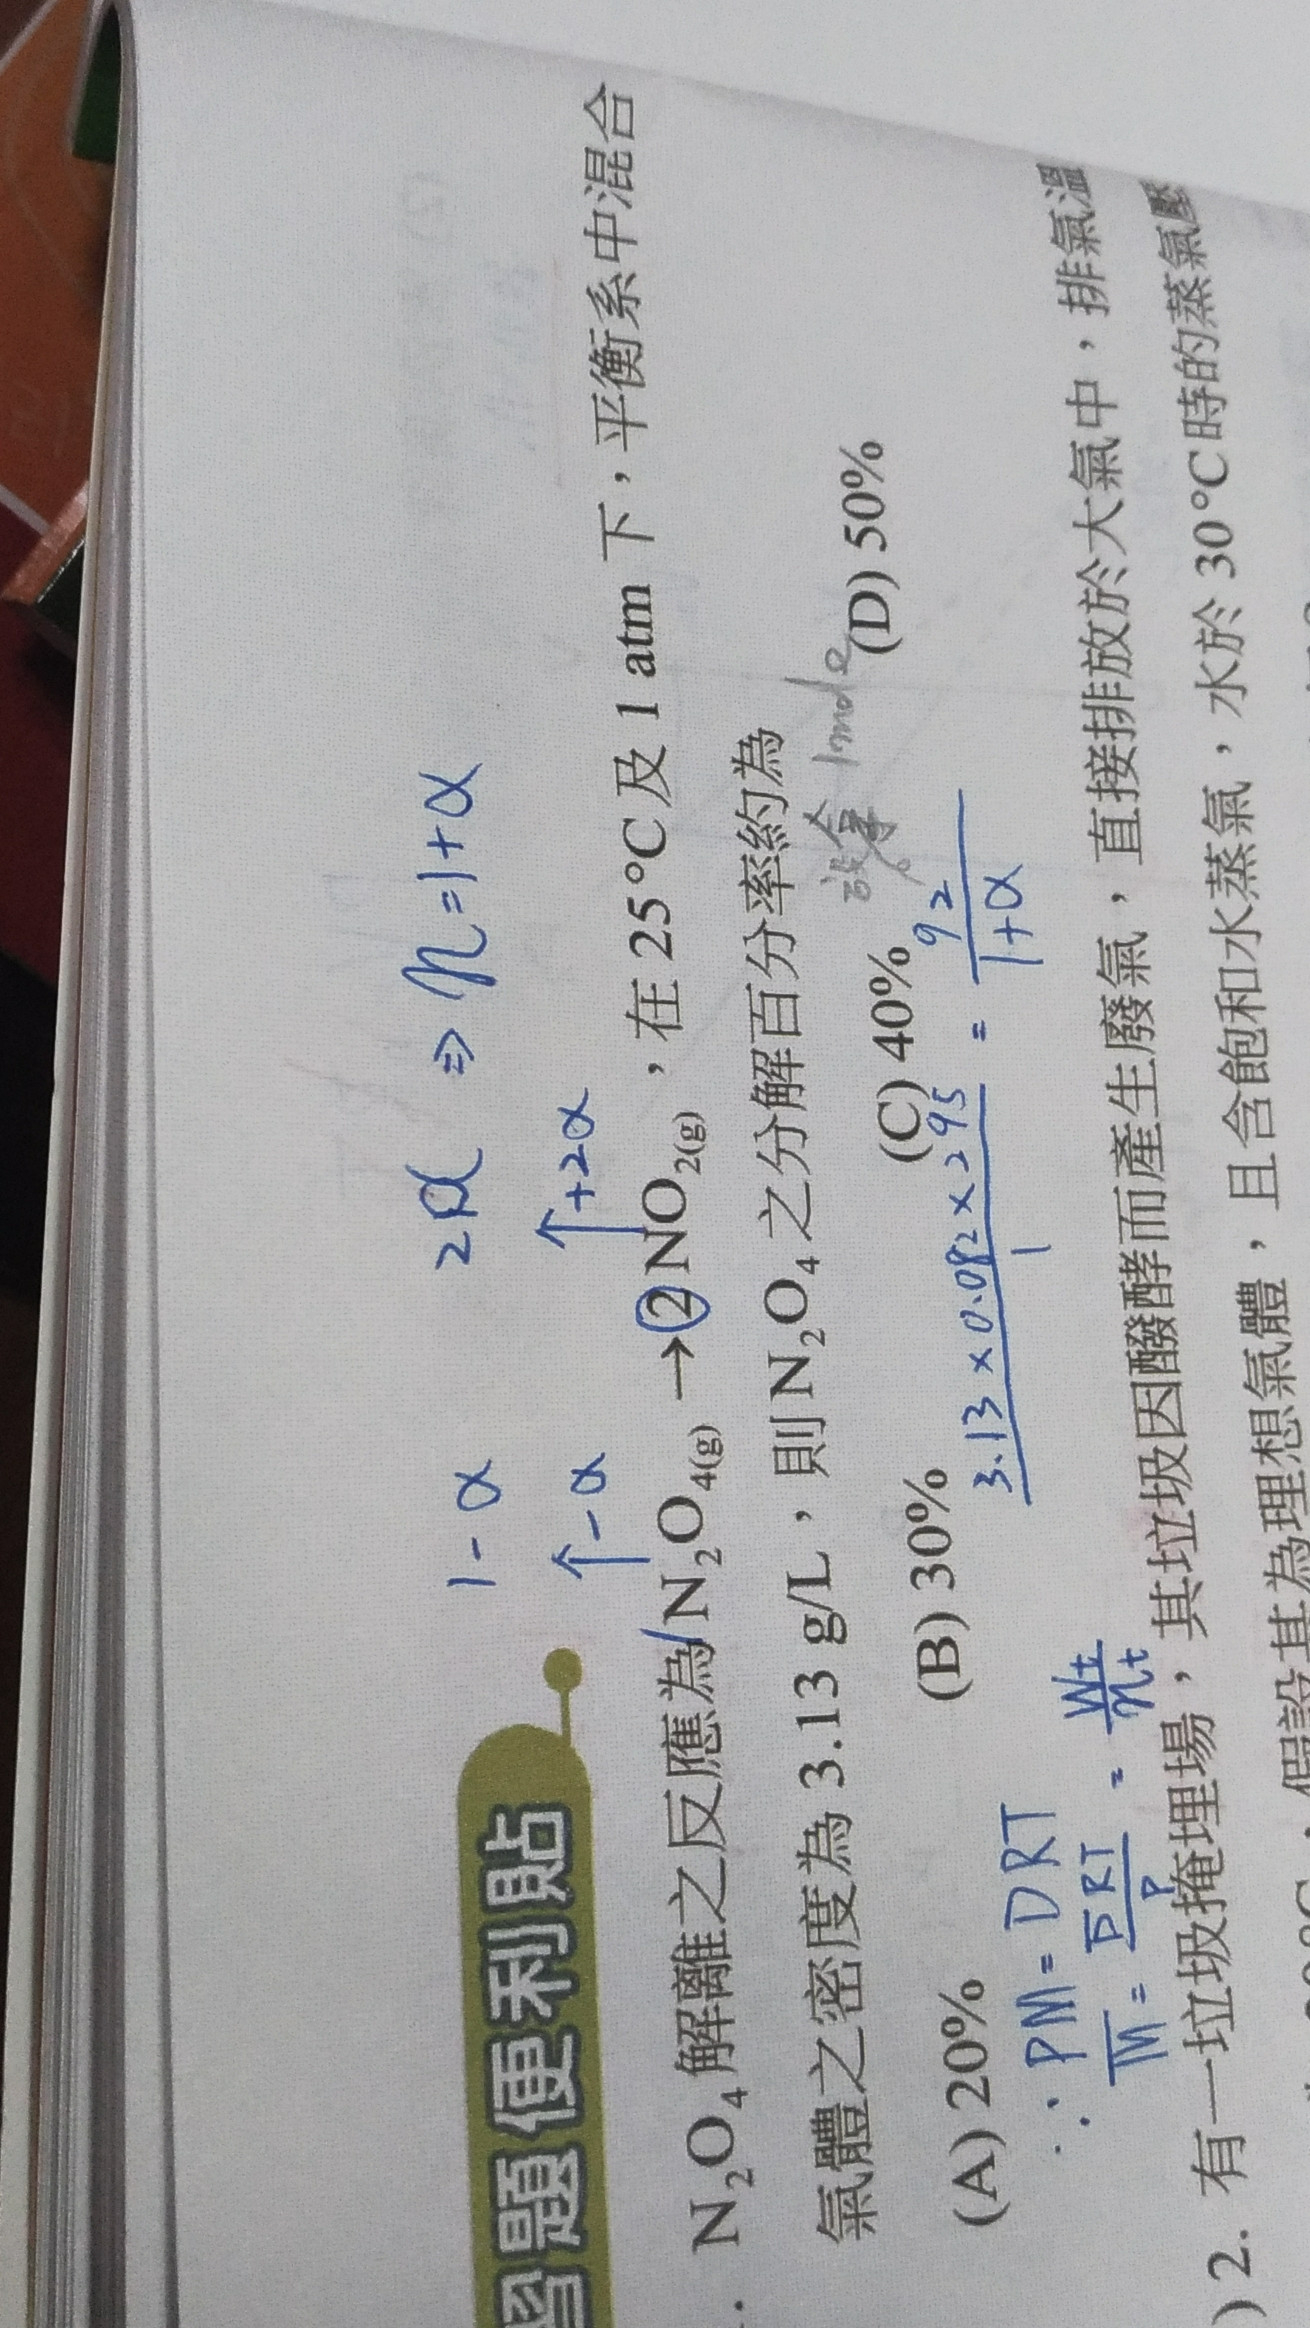 習題便利貼
1-α 2α ⇒ n=1+α
↑-α ↑+2α
. N₂O₄解離之反應為 N₂O₄₍g₎ → 2 NO₂₍g₎ ,在 25°C及 1 atm 下,平衡系中混合
氣體之密度為 3.13 g/L,則 N₂O₄ 之分解百分率約為
1mole
(A) 20% (B) 30% (C) 40% (D) 50%
∴ PM = DRT
M̄ = DRT/P = Wt/nt
3.13 × 0.082 × 295/1 = 92/1+α
) 2. 有一垃圾掩埋場,其垃圾因醱酵而產生廢氣,直接排放於大氣中,排氣溫
假設其為理想氣體,且含飽和水蒸氣,水於 30°C時的蒸氣壓